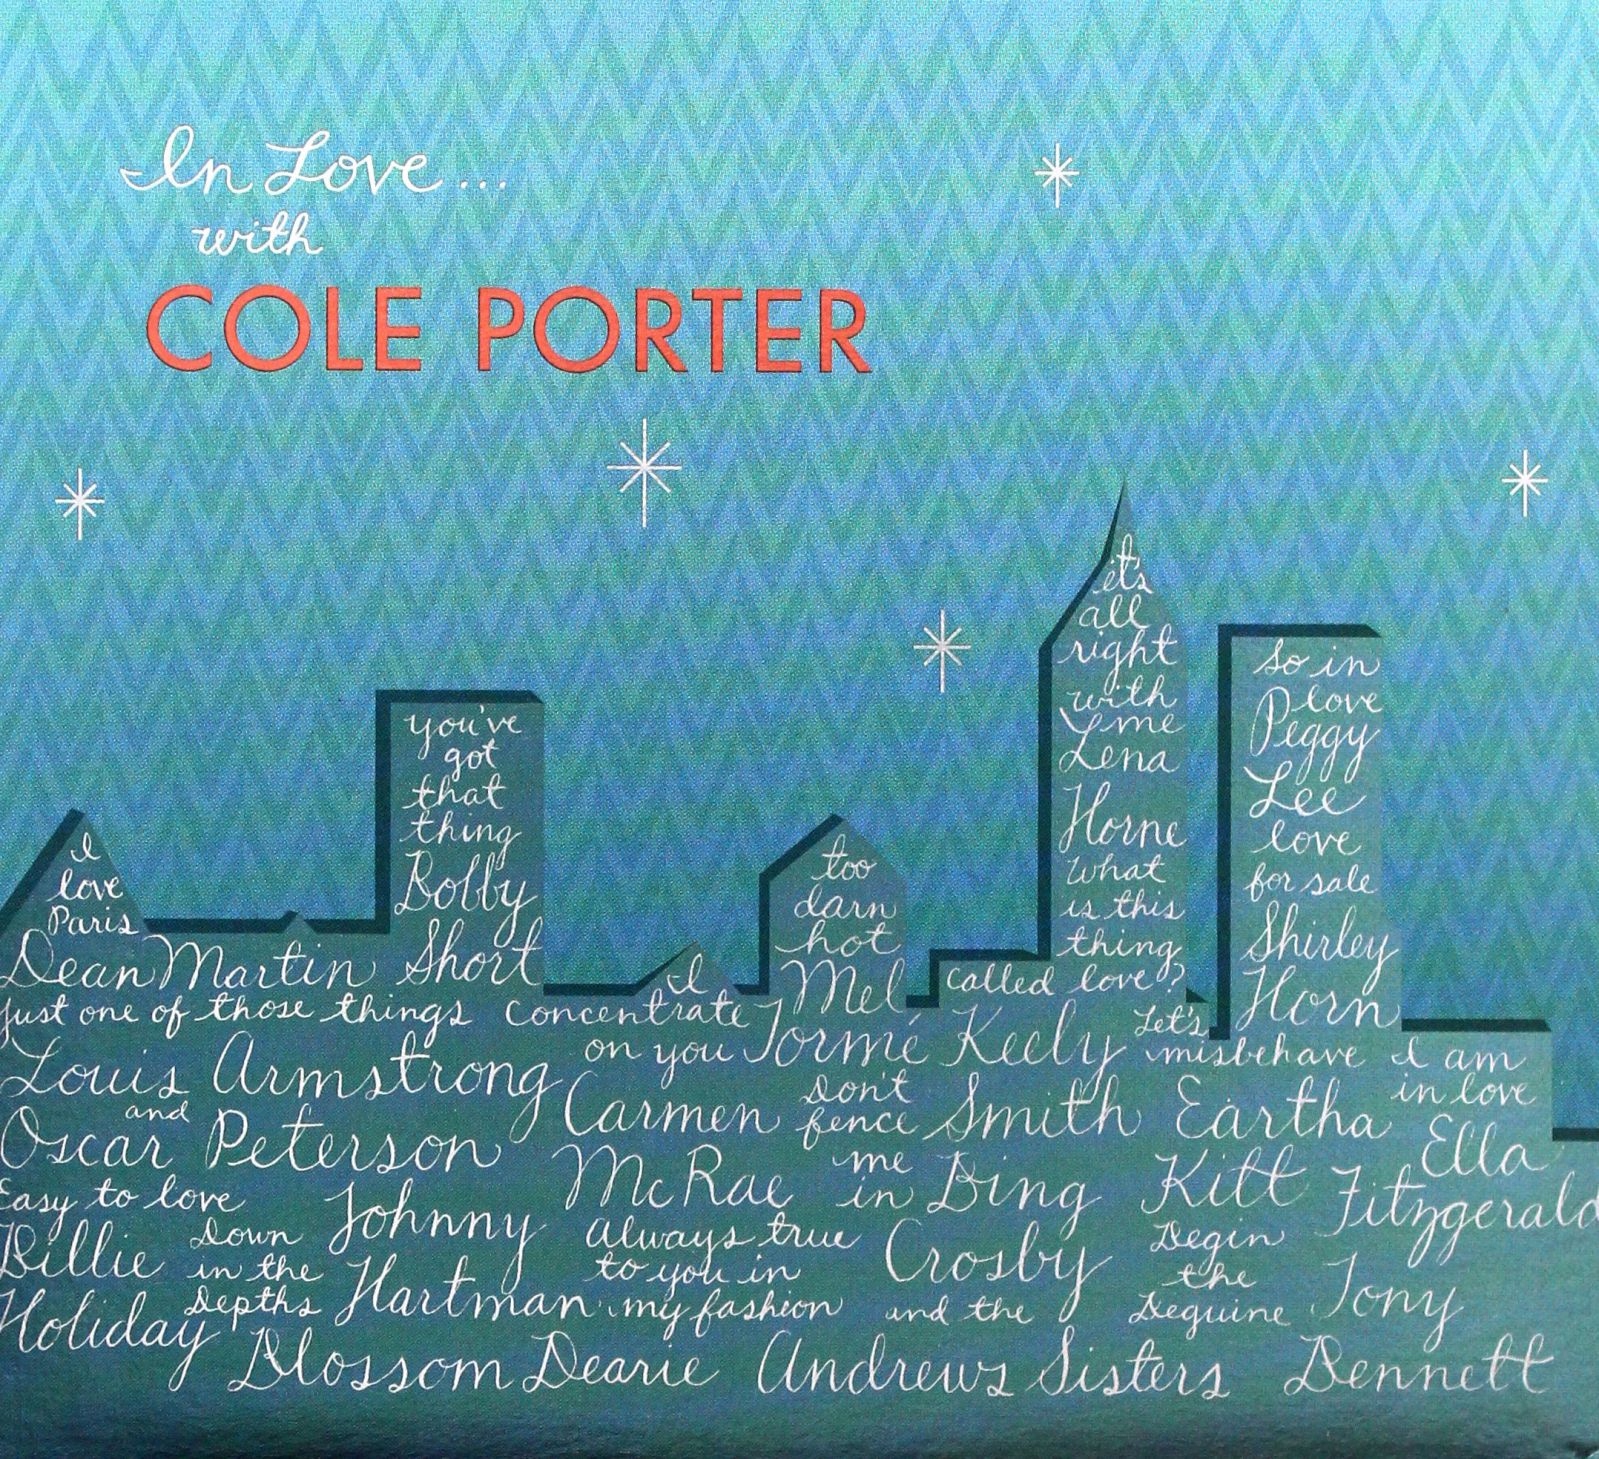 In Love...
with
COLE PORTER
I
love
Paris
Dean Martin
you've
got
that
thing
Bobby
Short
just one of those things
Louis Armstrong
and
Oscar Peterson
I
Concentrate
on you
Carmen
McRae
too
darn
hot
Mel
Tormé
it's
all
right
with
me
Lena
Horne
What
is this
thing
called love?
Keely
Smith
so in
love
Peggy
Lee
love
for sale
Shirley
Horn
Let's
misbehave
Eartha
Kitt
I am
in love
Ella
Fitzgerald
Easy to love
Billie
Holiday
Down
in the
Depths
Johnny
Hartman
always true
to you in
my fashion
Blossom Dearie
Don't
fence
me
in
Bing
Crosby
and the
Andrews Sisters
Begin
the
Beguine
Tony
Bennett